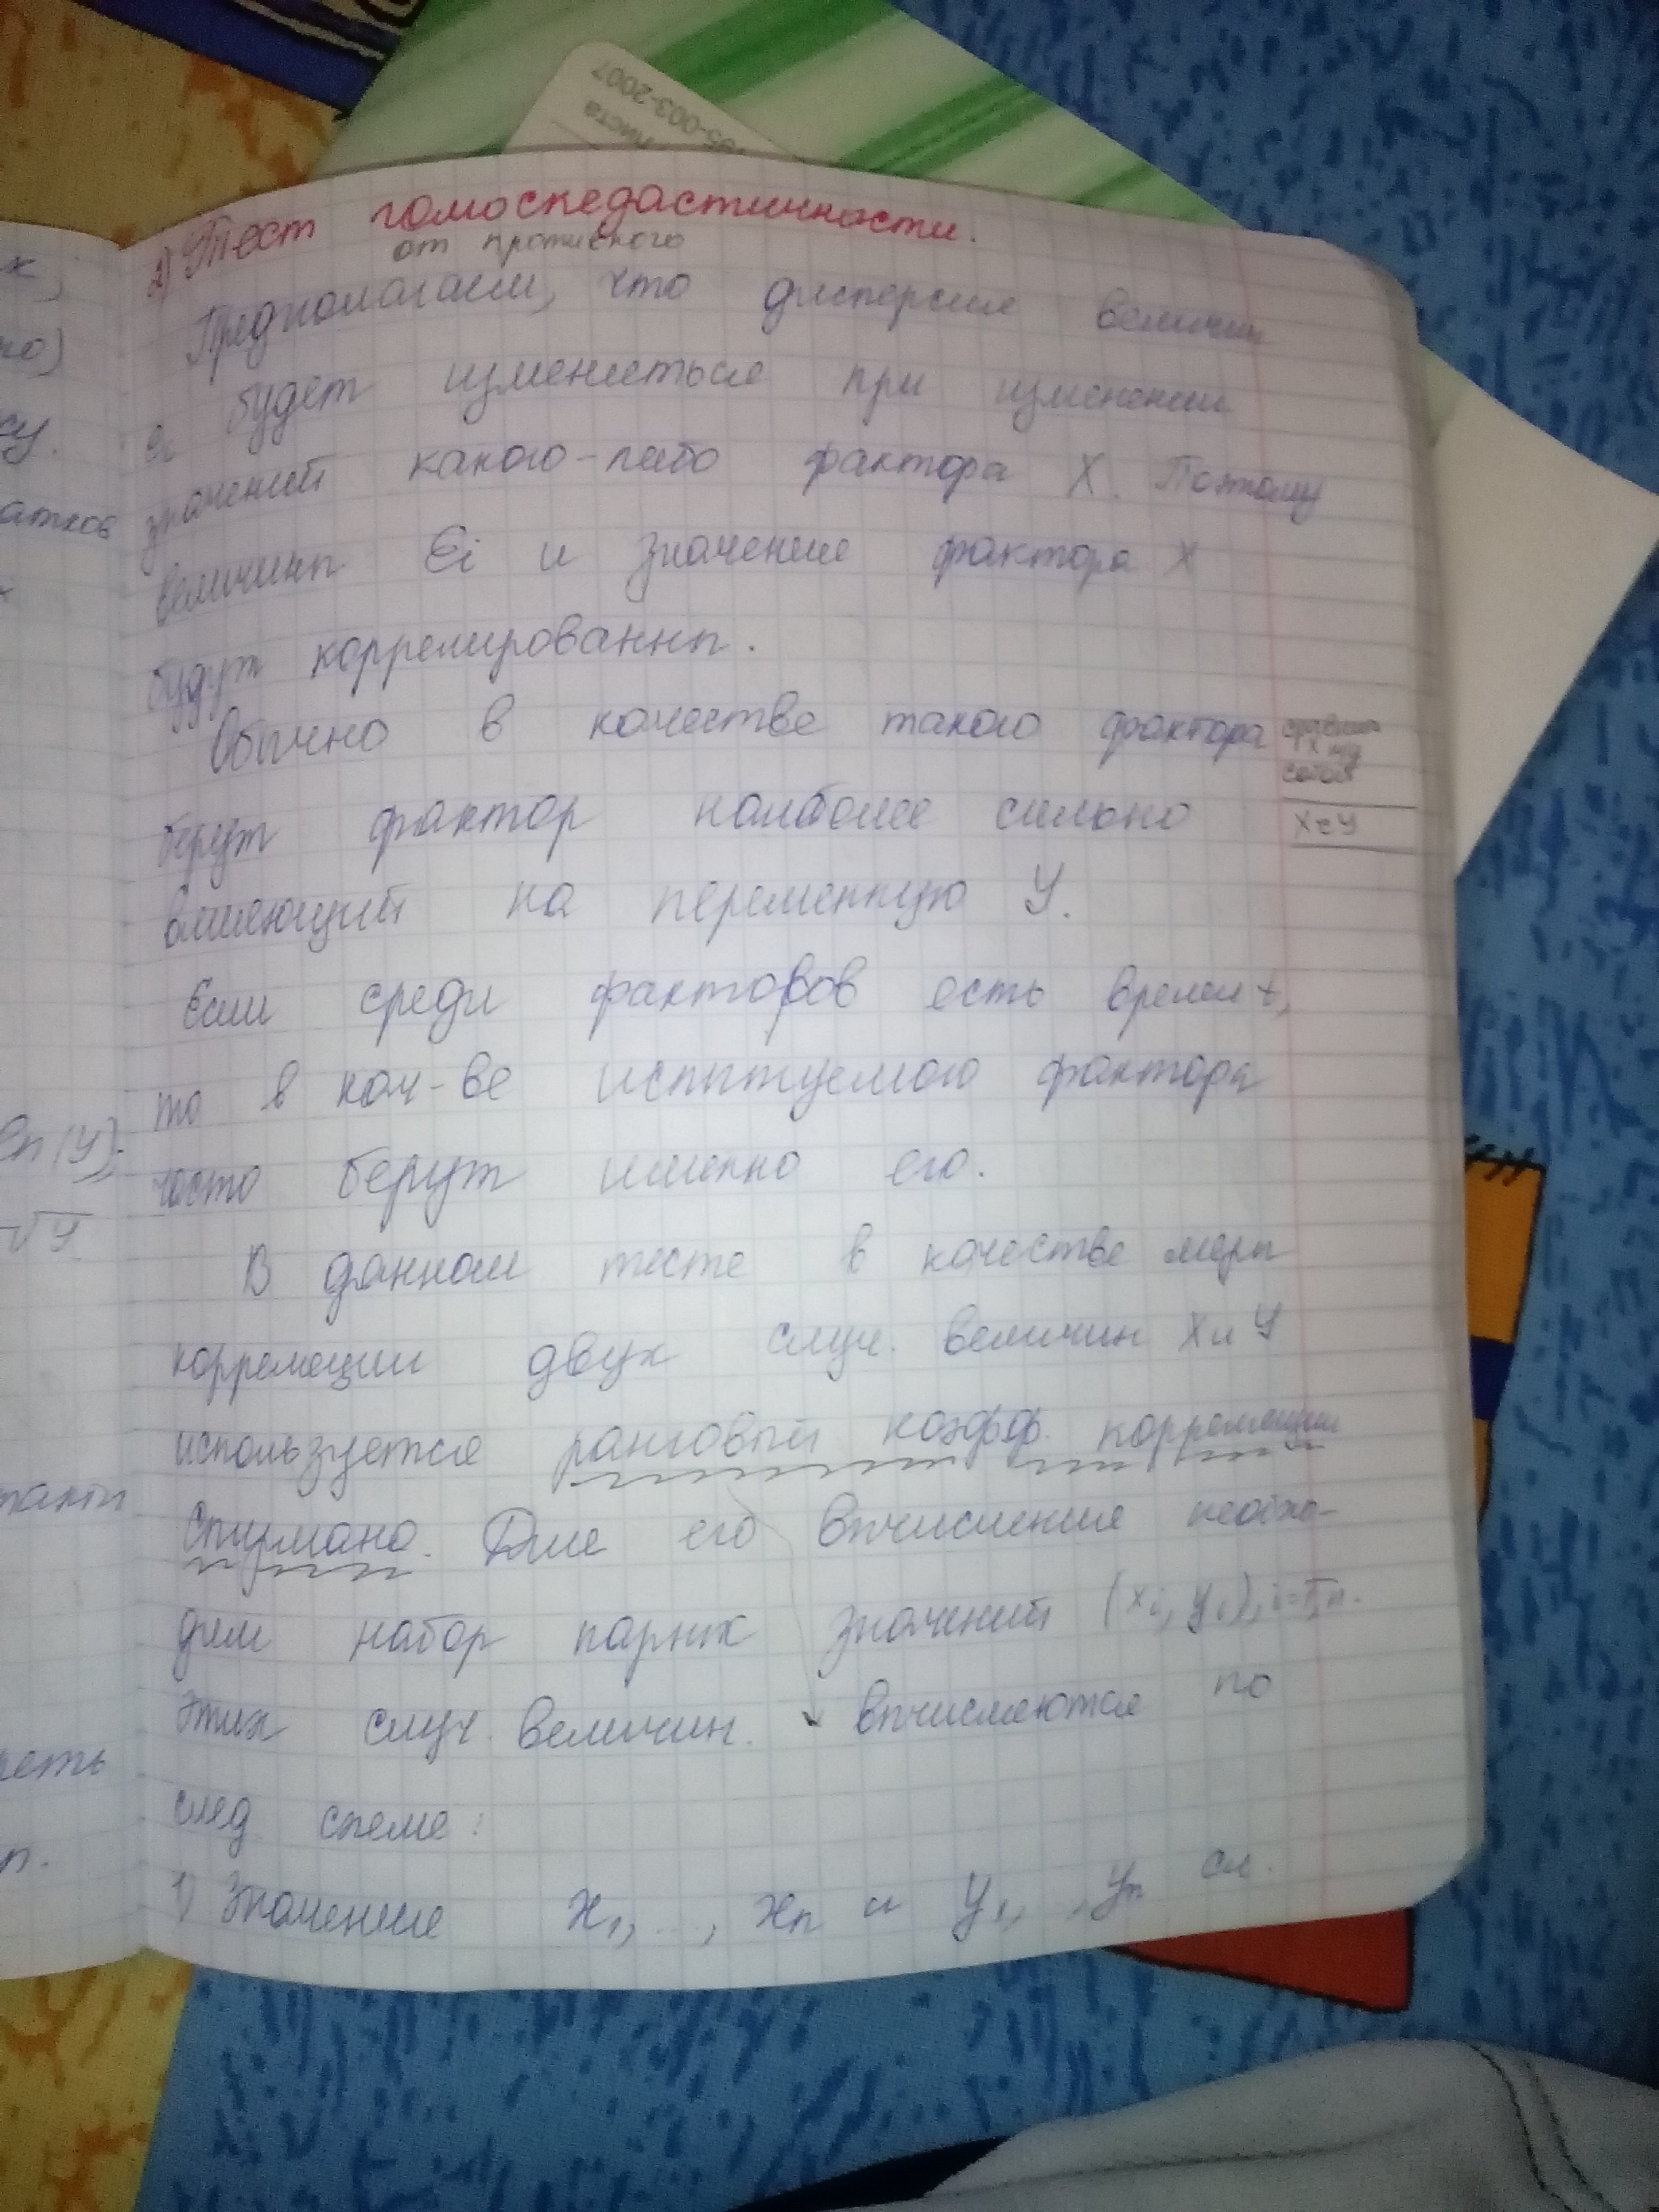 листа
95-003-2007
2) Тест гомоскедастичности.
от противного
Предполагаем, что дисперсия величин
ei будет изменяться при изменении
значений какого-либо фактора X. Поэтому
величины Ei и значение фактора X
будут коррелированны.
Обычно в качестве такого фактора
берут фактор наиболее сильно
влияющий на переменную У.
Если среди факторов есть время t,
то в кач-ве испытуемого фактора
часто берут именно его.
В данном тесте в качестве меры
корреляции двух случ. величин X и У
используется ранговый коэфф. корреляции
Спирмана. Для его вычисление необхо-
дим набор парных значений (xi, yi), i=1,n.
этих случ. величин. вычисляются по
след схеме:
1) Значение x1, ..., xn и y1, , yn сл.
собой
X и У
к,
но)
су.
атков
ln(У);
√У
такты
реть
п.